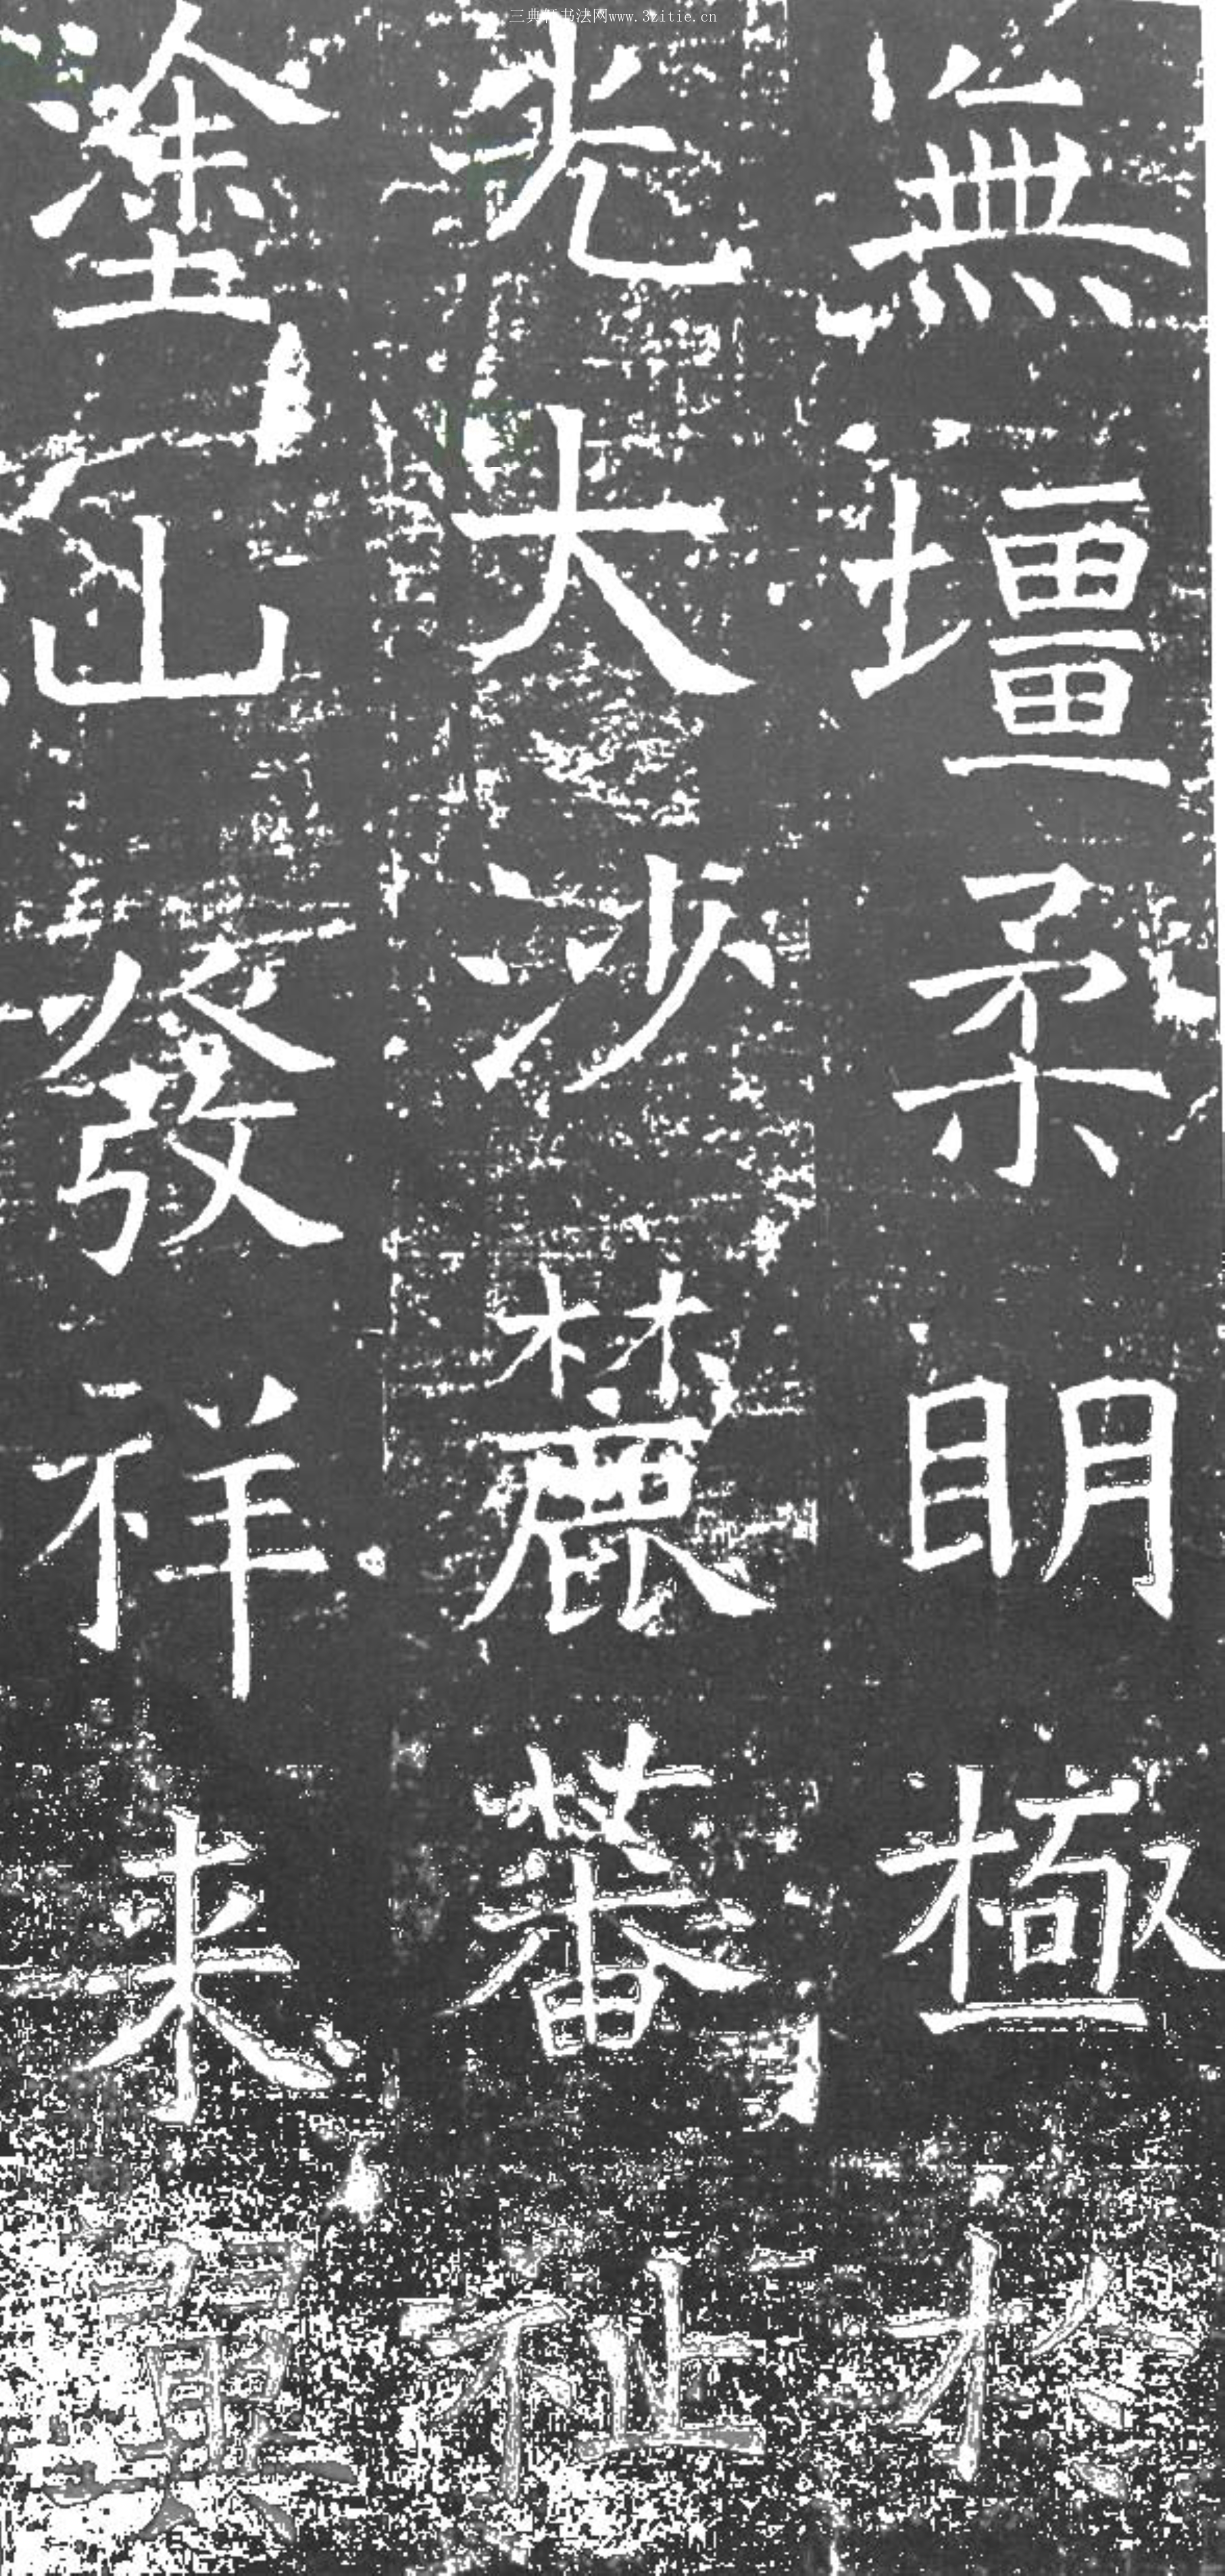 三典轩书法网www.3zitie.cn
無壃柔明極於
光大沙麓蕃祉
塗山發祥来翼